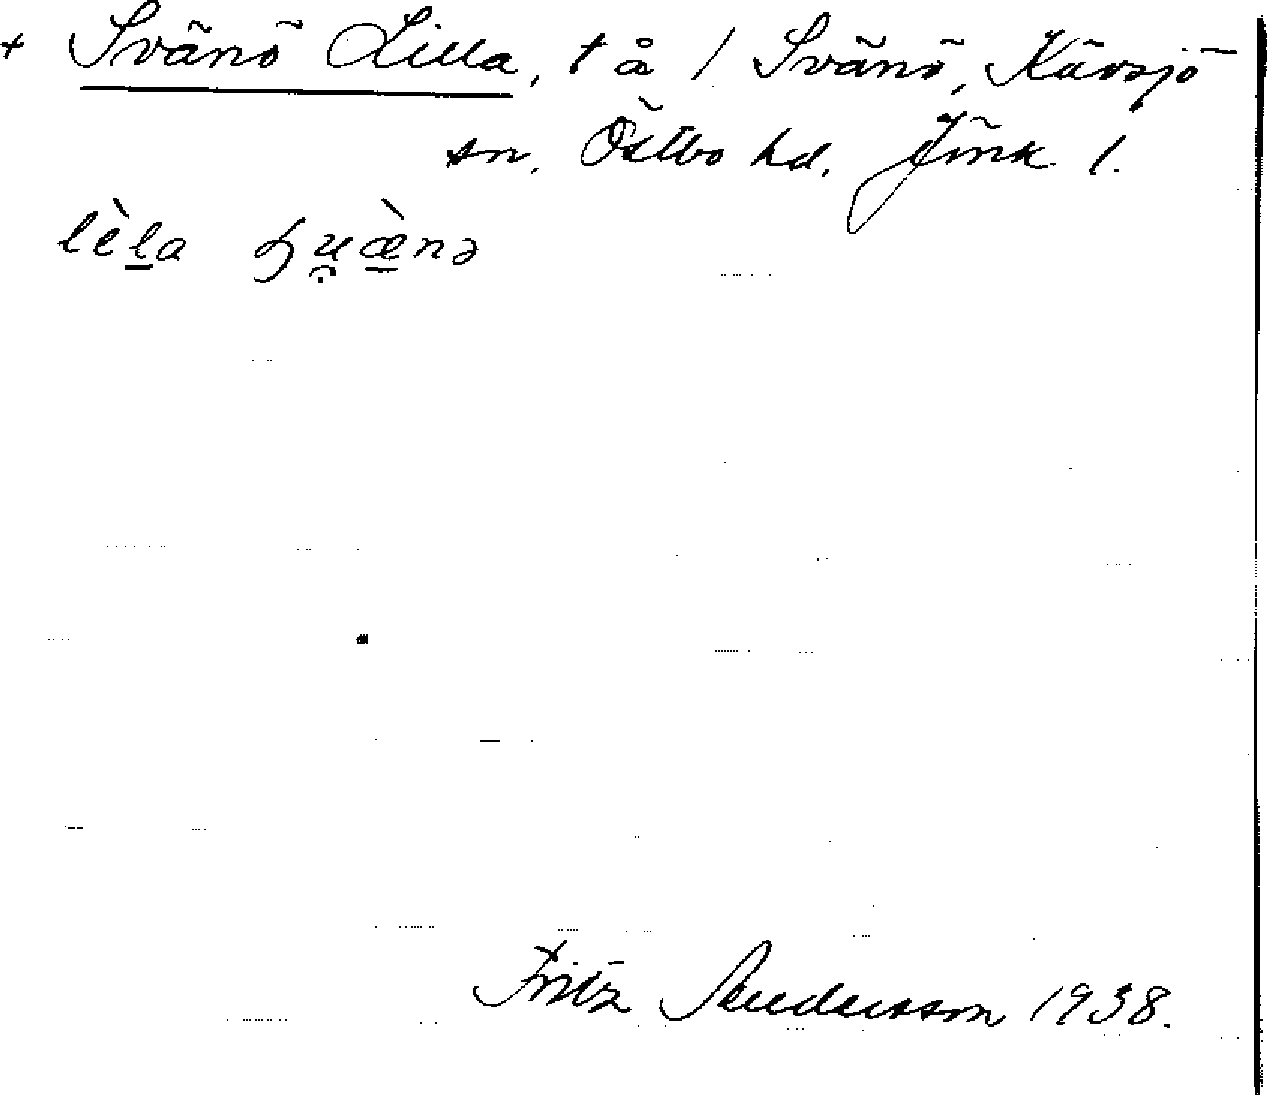 + Svänö Lilla, t å / Svänö, Kävsjö
sn. Östbo hd. Jönk l.
lèla
Fritz Andersson 1938.